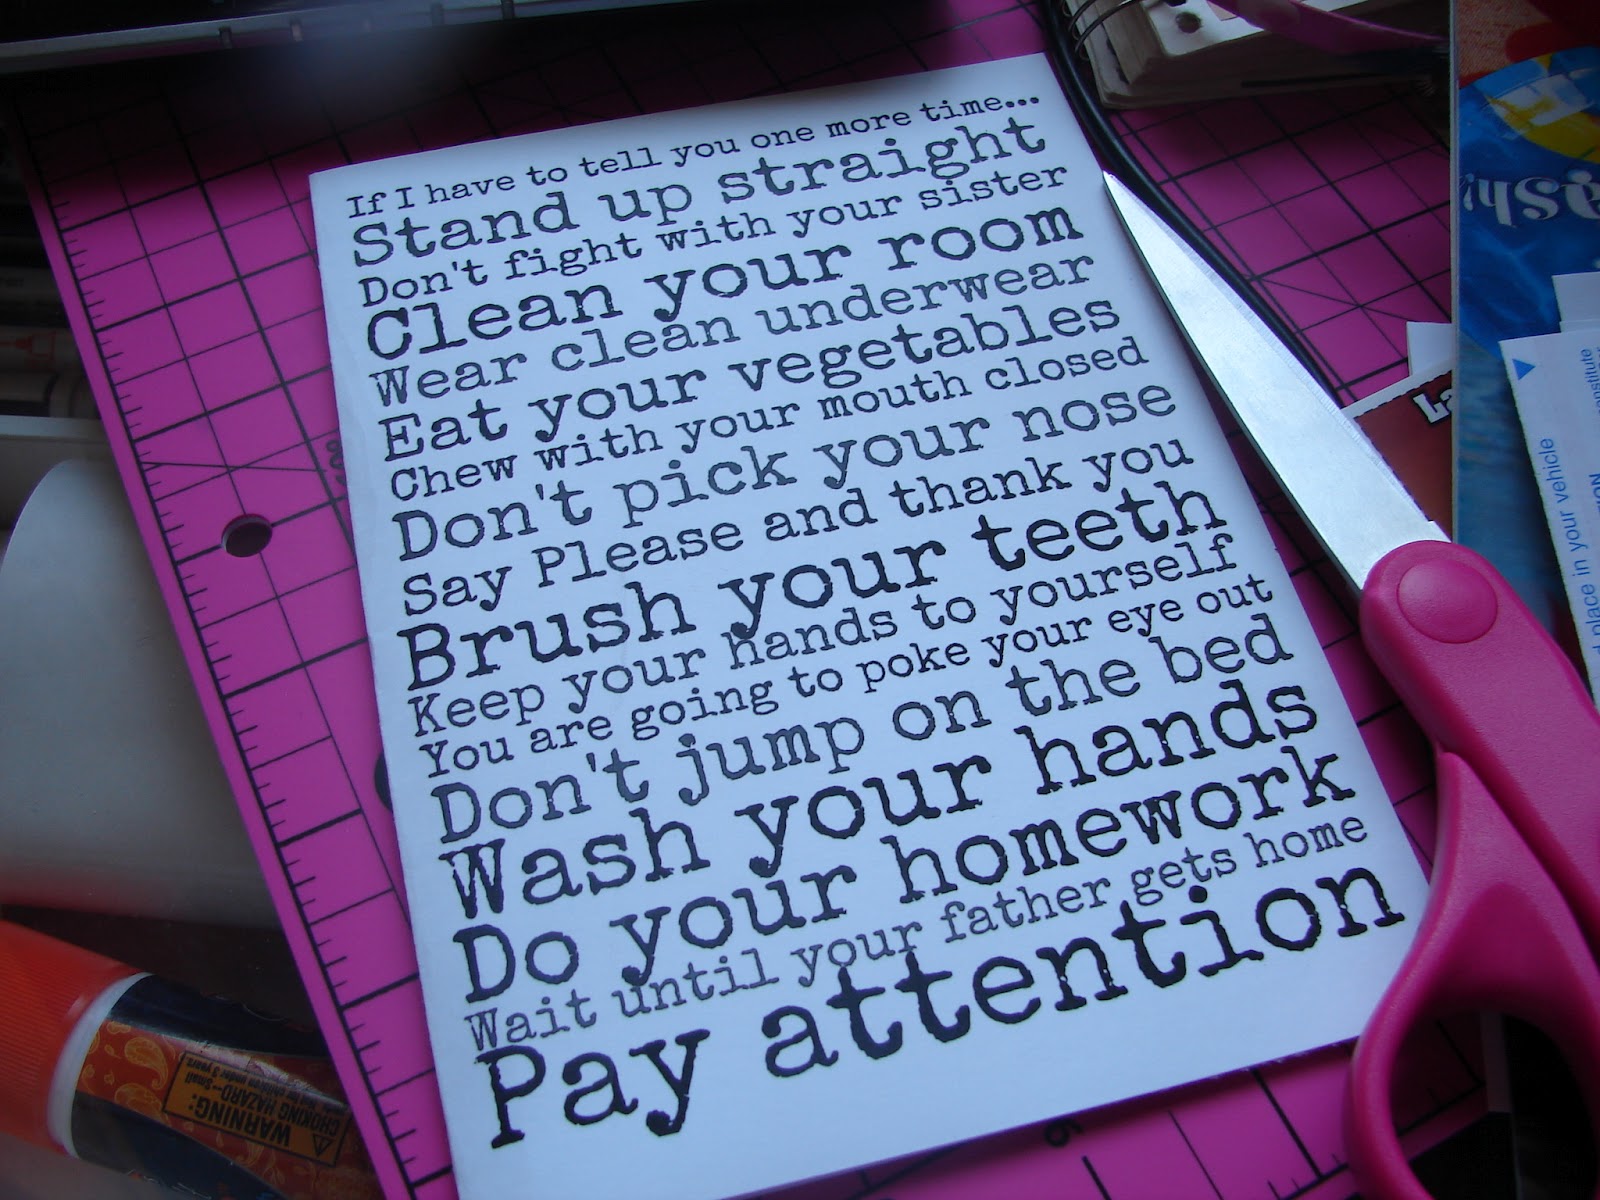 If I have to tell you one more time...
Stand up straight
Don't fight with your sister
Clean your room
Wear clean underwear
Eat your vegetables
Chew with your mouth closed
Don't pick your nose
Say Please and thank you
Brush your teeth
Keep your hands to yourself
You are going to poke your eye out
Don't jump on the bed
Wash your hands
Do your homework
Wait until your father gets home
Pay attention
WARNING:
CHOKING HAZARD--Small
parts. Not for children under 3 years.
place in your vehicle
La